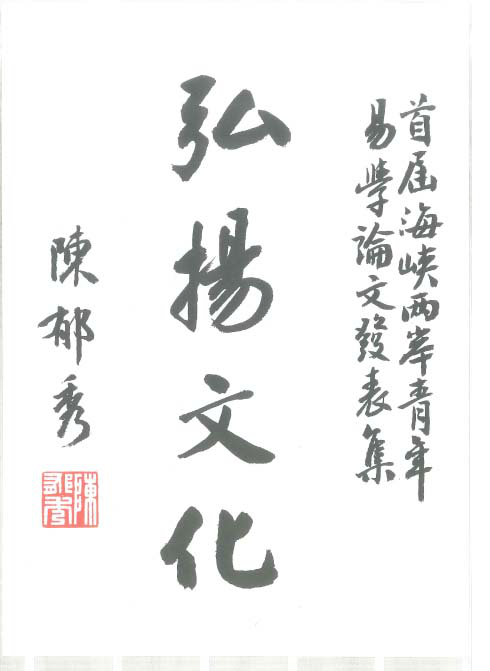 首届海峽兩岸青年
易學論文發表集
弘揚文化
陳郁秀
陳郁秀